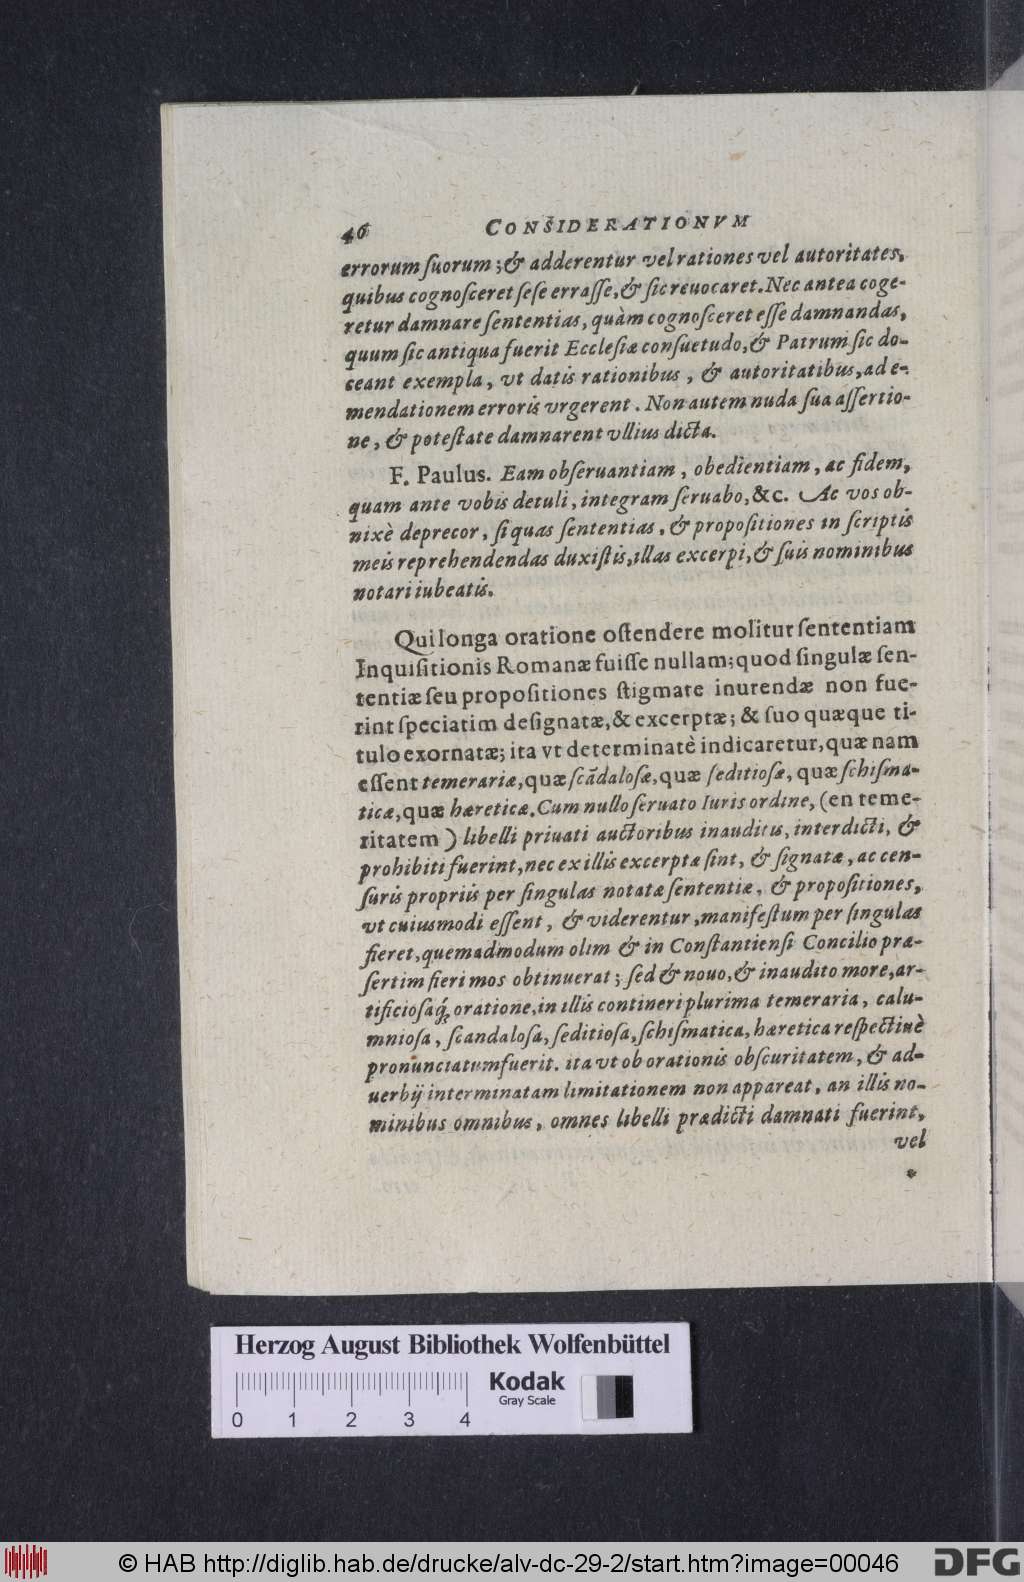 46 CONSIDERATIONVM
errorum ſuorum; & adderentur vel rationes vel autoritates,
quibus cognoſceret ſeſe erraſſe, & ſic reuocaret. Nec antea coge-
retur damnare ſententias, quàm cognoſceret eſſe damnandas,
quum ſic antiqua fuerit Eccleſiæ conſuetudo, & Patrum ſic do-
ceant exempla, vt datis rationibus, & autoritatibus, ad e-
mendationem erroris vrgerent. Non autem nuda ſua aſſertio-
ne, & poteſtate damnarent vllius dicta.
F. Paulus. Eam obſeruantiam, obedientiam, ac fidem,
quam ante vobis detuli, integram ſeruabo, &c. Ac vos ob-
nixè deprecor, ſi quas ſententias, & propoſitiones in ſcriptis
meis reprehendendas duxiſtis, illas excerpi, & ſuis nominibus
notari iubeatis.
Qui longa oratione oſtendere molitur ſententiam
Inquiſitionis Romanæ fuiſſe nullam; quod ſingulæ ſen-
tentiæ ſeu propoſitiones ſtigmate inurendæ non fue-
rint ſpeciatim deſignatæ, & excerptæ; & ſuo quæque ti-
tulo exornatæ; ita vt determinatè indicaretur, quæ nam
eſſent temerariæ, quæ ſcãdaloſæ, quæ ſeditioſæ, quæ ſchiſma-
ticæ, quæ hæreticæ. Cum nullo ſeruato Iuris ordine, (en teme-
ritatem) libelli priuati auctoribus inauditis, interdicti, &
prohibiti fuerint, nec ex illis excerptæ ſint, & ſignatæ, ac cen-
ſuris propriis per ſingulas notatæ ſententiæ, & propoſitiones,
vt cuiusmodi eſſent, & viderentur, manifeſtum per ſingulas
fieret, quemadmodum olim & in Conſtantienſi Concilio præ-
ſertim fieri mos obtinuerat; ſed & nouo, & inaudito more, ar-
tificioſaq́; oratione, in illis contineri plurima temeraria, calu-
mnioſa, ſcandaloſa, ſeditioſa, ſchiſmatica, hæretica reſpectiuè
pronunciatum fuerit. ita vt ob orationis obſcuritatem, & ad-
uerbij interminatam limitationem non appareat, an illis no-
minibus omnibus, omnes libelli prædicti damnati fuerint,
vel
*
Herzog August Bibliothek Wolfenbüttel
Kodak
Gray Scale
0 1 2 3 4
© HAB http://diglib.hab.de/drucke/alv-dc-29-2/start.htm?image=00046
DFG